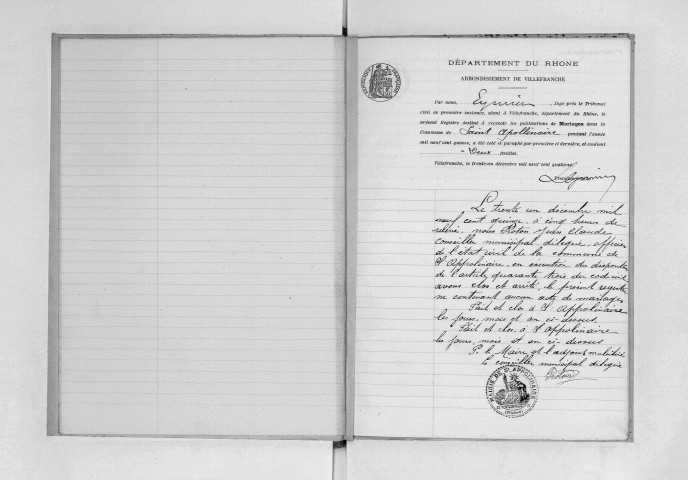 DÉPARTEMENT DU RHONE
ARRONDISSEMENT DE VILLEFRANCHE
Par nous, Eymin, Juge près le Tribunal
civil de première instance, séant à Villefranche, département du Rhône, le
présent Registre destiné à recevoir les publications de Mariages dans la
Commune de Saint Apollinaire pendant l'année
mil neuf cent quinze, a été coté et paraphé par première et dernière, et contient
Deux feuilles.
Villefranche, le trente-un décembre mil neuf cent quatorze.
Le trente un décembre mil
neuf cent quinze, à cinq heures de
relevé, nous Proton Jean Claude
conseiller municipal délégué, officier
de l'état civil de la commune de
St Appolinaire, en exécution des disposit
de l'article quarante trois du code civil
avons clos et arrêté, le présent registre
ne contenant aucun acte de mariages
Fait et clos à St Appolinaire
les jours, mois et an ci-dessus
Fait et clos, à St Appolinaire
les jours, mois et an ci-dessus
P. le Maire et l'adjoint mobilisé
le conseiller municipal délégué
Proton
MAIRIE DE St APPOLINAIRE
(Rhône)